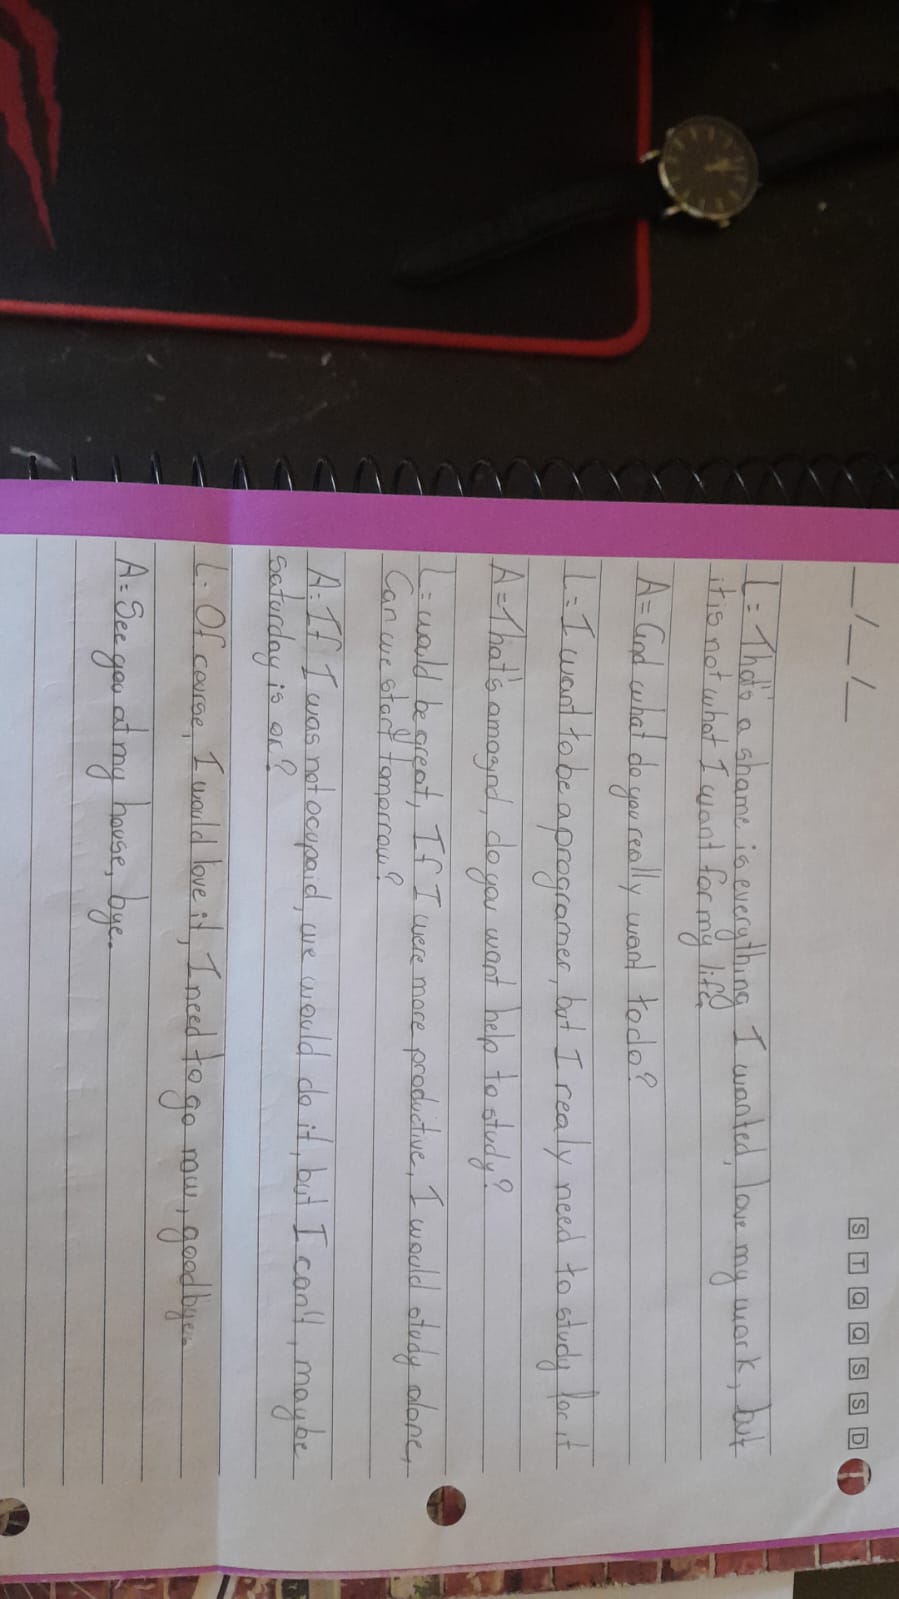 _/_/_
S T Q Q S S D
L= That's a shame is everything I wanted, love my work, but
it is not what I want for my life.
A= And what do you really want to do?
L= I want to be a programer, but I realy need to study for it
A= That's amaznd, do you want help to study?
L= would be great, If I were more productive, I would study alone,
Can we start tomorrow?
A: If I was not ocupaid, we would do it, but I can't, maybe
saturday is ok?
L: Of course, I would love it, I need to go now, goodbye.
A= See you at my house, bye.